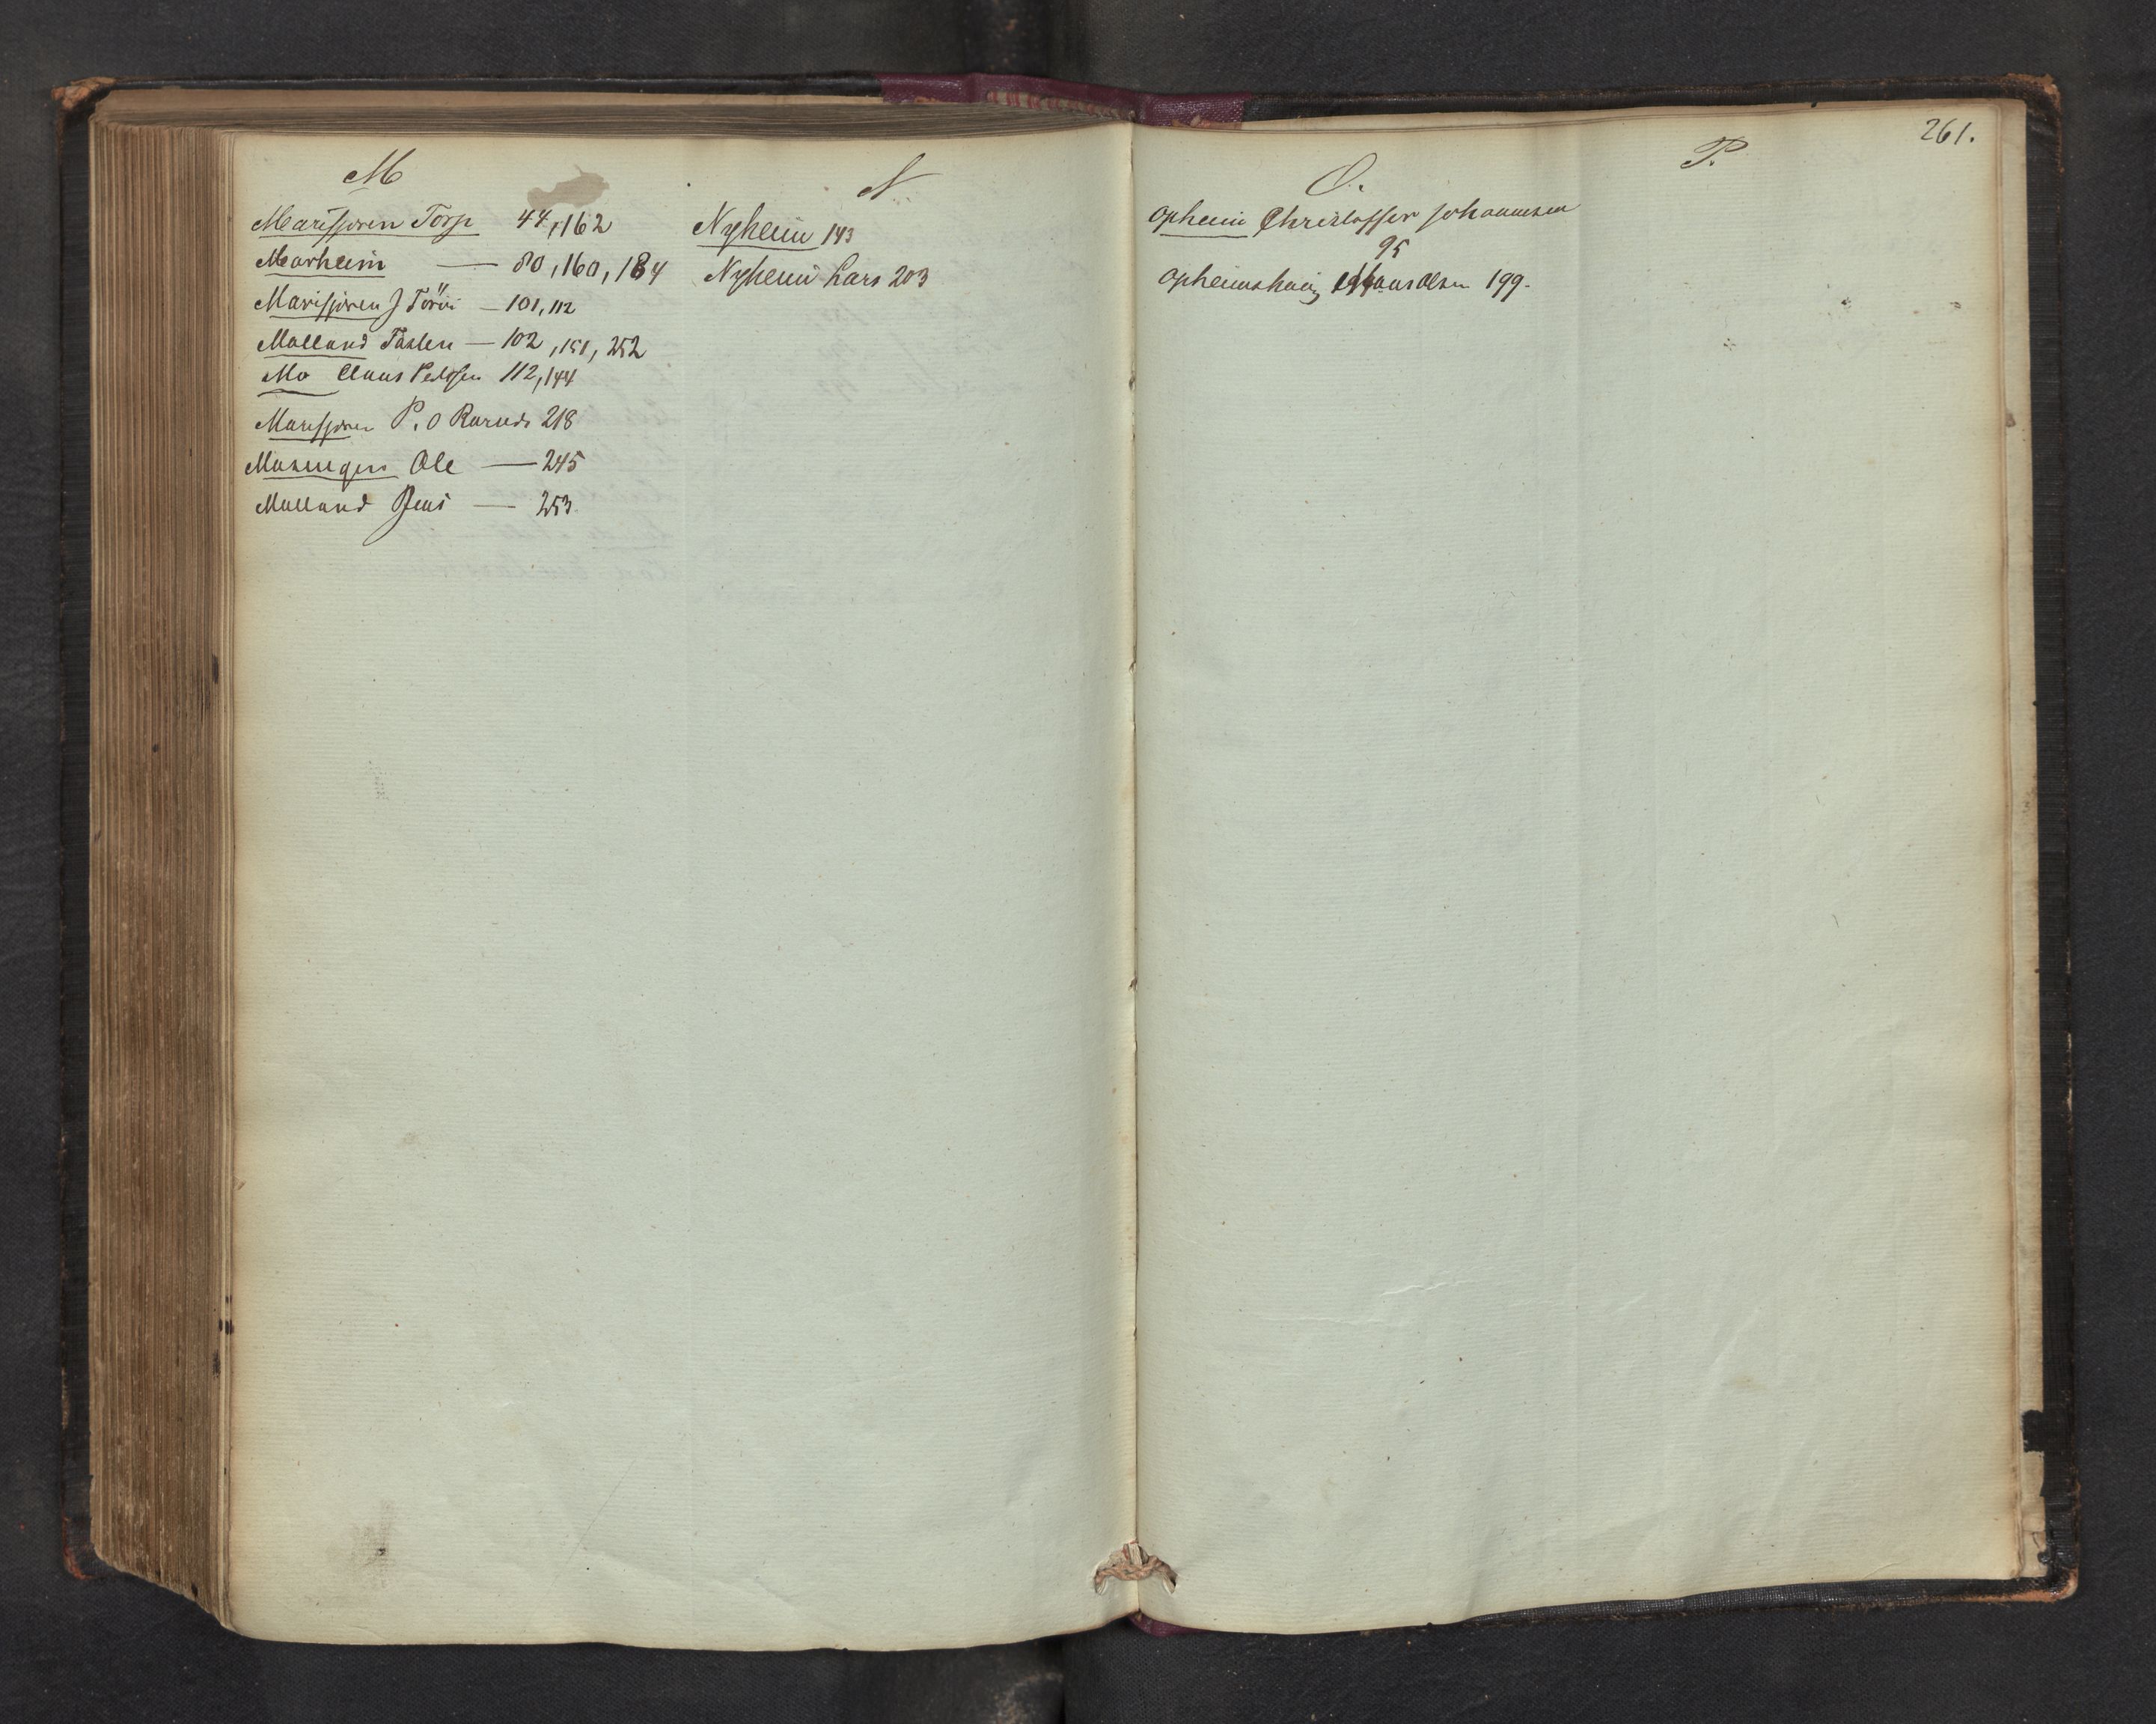 M
Marifjøren Torp 44, 162
Marheim — 80, 160, 184
Marifjøren J — 101, 112
Molland — 102, 151, 252
Mo Claus Pedersen 112, 144
Marifjøren P. O 218
Ole — 245
Molland Jens — 253
N
Nyheim 143
Nyheim Lars 203
O.
Opheim Christoffer Johannesen
95
Opheimshaug Hans Olsen 199.
P.
261.